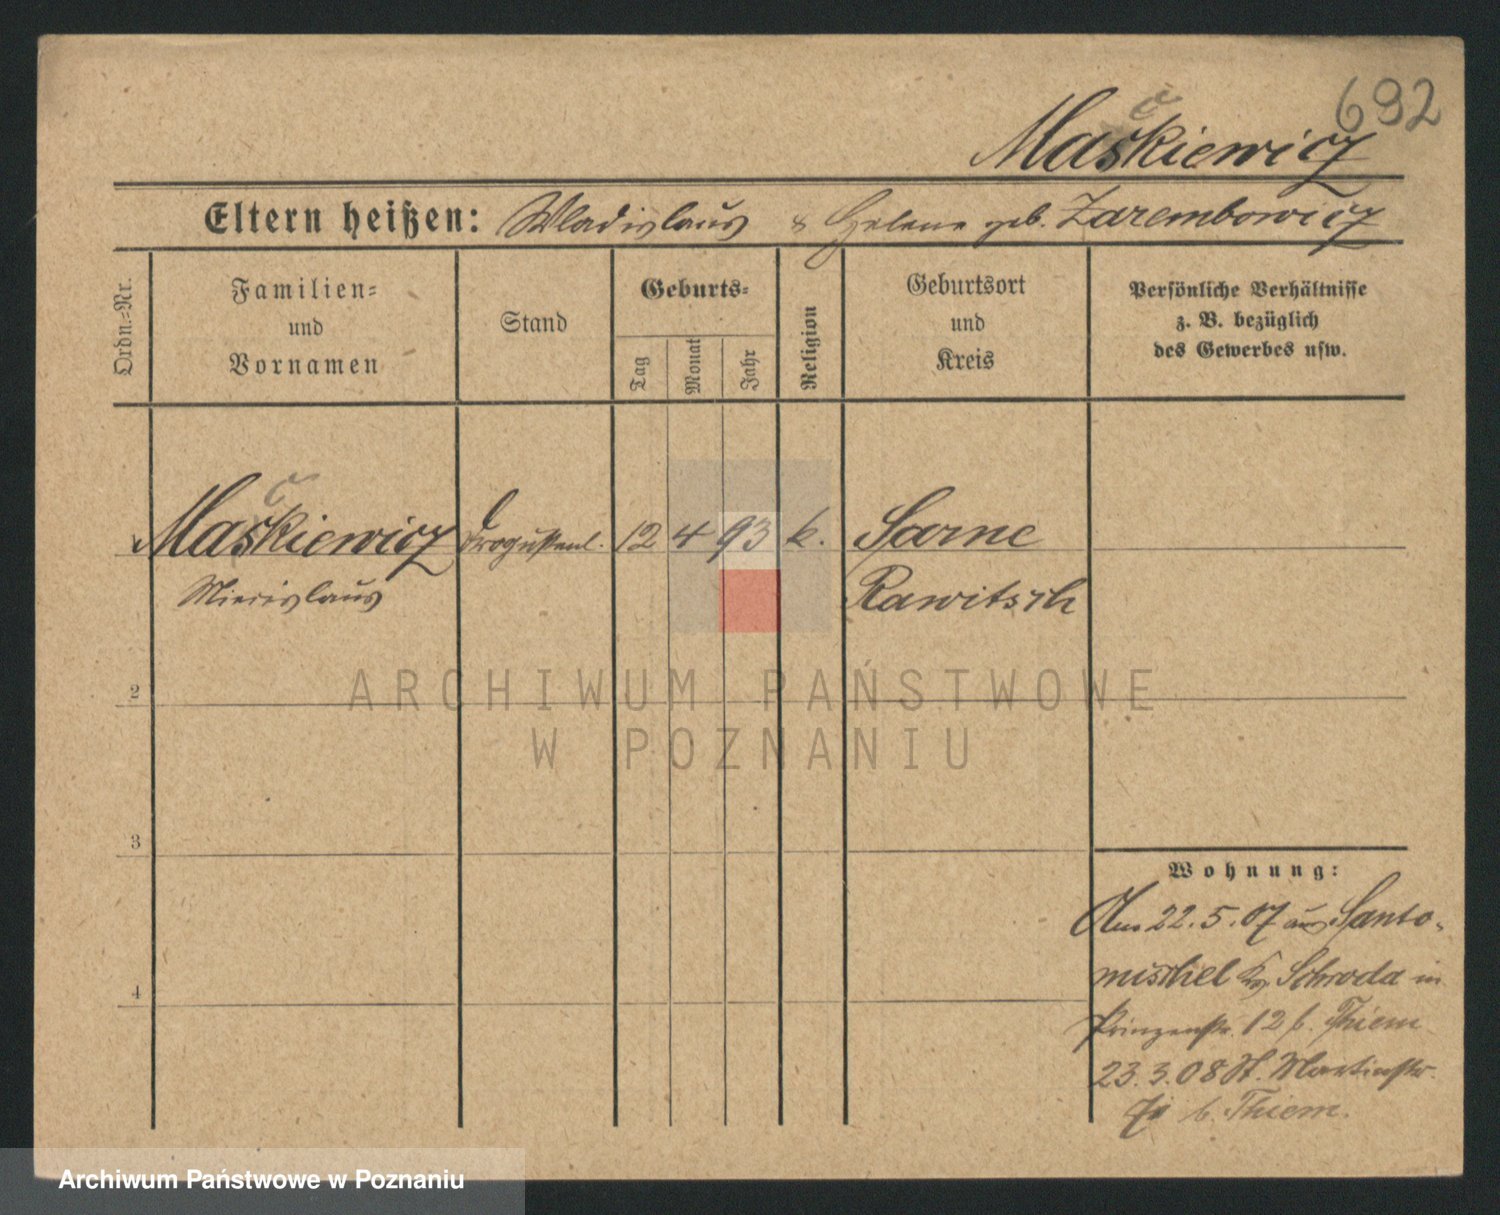 692
Maśkiewicz
Eltern heißen: Wladislaus & Helene geb. Zarembowicz
Ordn.=Nr.
Familien=
und
Vornamen
Stand
Geburts=
Tag
Monat
Jahr
Religion
Geburtsort
und
Kreis
Persönliche Verhältnisse
z. B. bezüglich
des Gewerbes usw.
Maśkiewicz 12 4 93 k. Sarne
Miecislaus Rawitsch
2
3
4
ARCHIWUM PAŃSTWOWE
W POZNANIU
Wohnung:
22.5.07 aus Santo-
mischel Kr. Schroda in
Prinzenstr. 12 b. Thiem
23.3.08 St. Martinstr.
b. Thiem.
Archiwum Państwowe w Poznaniu